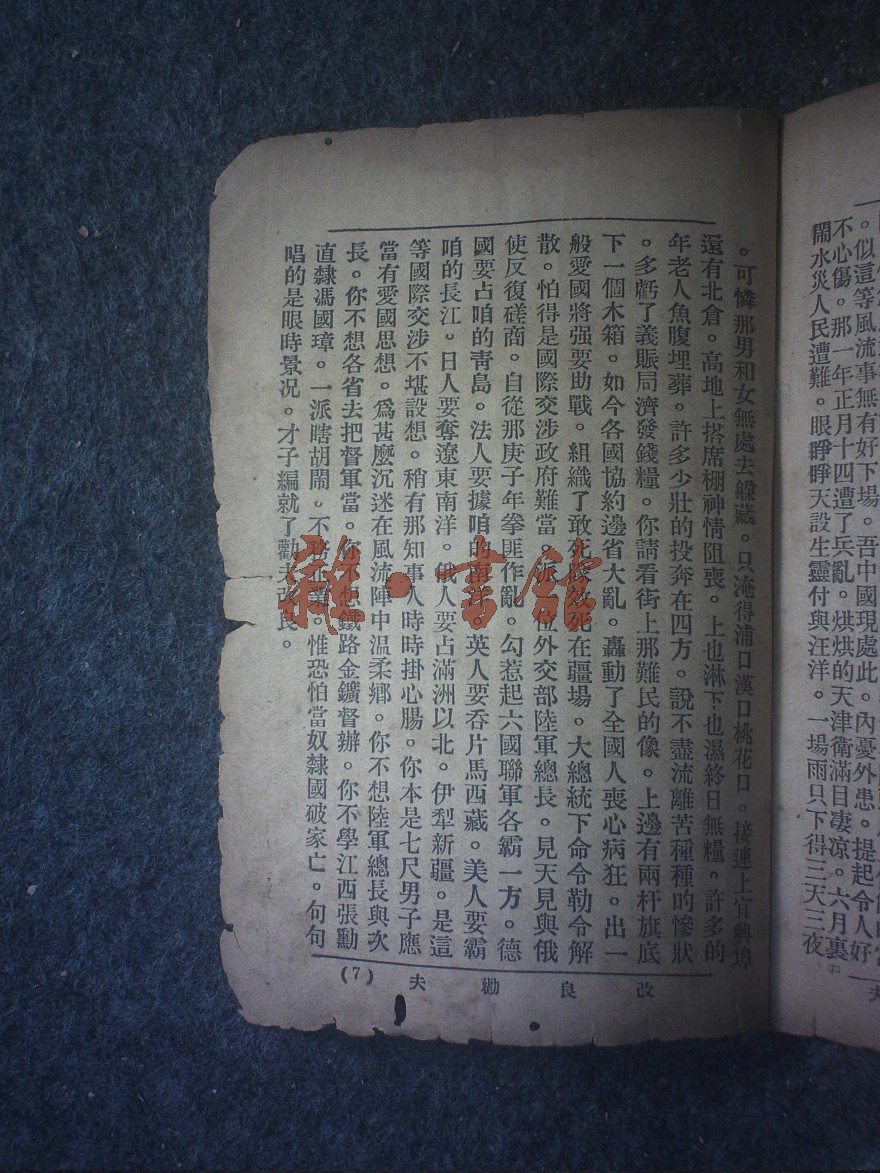 不心傷。那一年正月十四遭了兵亂。烘烘的天津衛滿目凄凉。六月裏
鬧水災人民遭難。眼睜睜天設生靈付與汪洋。一場雨只下得三天三夜
。可憐那男和女無處去躱藏。只淹得浦口漢口桃花口。接連上宜興埠
還有北倉。高地上搭席棚神情阻喪。上也淋下也濕終日無糧。許多的
年老人魚腹埋葬。許多少壯的投奔在四方。說不盡流離苦種種的慘狀
。多虧了義賑局濟發錢糧。你請看街上那難民的像。上邊有兩杆旗底
下一個木箱。如今各國協約邊省大亂。轟動了全國人喪心病狂。出一
般愛國將强要助戰。組織了敢死隊效死在疆場。大總統下命令勒令解
散。怕得是國際交涉政府難當。派一位外交部陸軍總長。見天見與俄
使反復磋商。自從那庚子年拳匪作亂。勾惹起六國聯軍各霸一方。德
國要占咱的靑島。法人要據咱的南洋。英人要吞片馬西藏。美人要霸
咱的長江。日人要奪遼東南洋。俄人要占滿洲以北。伊犁新疆。是這
等國際交涉不堪設想。稍有那知事人時時掛心腸。你本是七尺男子應
當有愛國思想。爲甚麼沉迷在風流陣中温柔鄉。你不想陸軍總長與次
長。你不想各省去把督軍當。你不想鐵路金鑛督辦。你不學江西張勳
直隸馮國璋。一派瞎胡鬧。不務正業。惟恐怕當奴隸國破家亡。句句
唱的是眼時景况。才子編就了勸夫改良。
改良勸夫
(7)
雜·書館